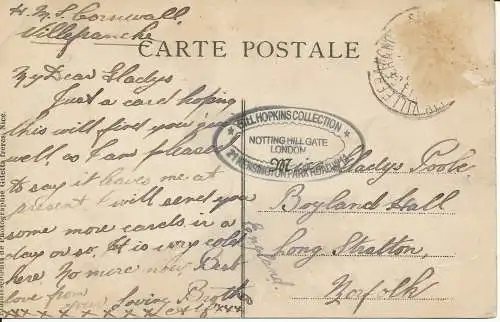 H. M. S. Cornwall.
Villefranche
CARTE POSTALE
My Dear Gladys
Just a card hoping
this will find you quite
well, as I am pleased
to say it leaves me at
present I will send you
some more cards in a
day or so. It is very cold
here No more now Best
love from your Loving Brother
x x x x x x x x x
BILL HOPKINS COLLECTION
NOTTING HILL GATE
LONDON
KENSINGTON PARK ROAD W11
Miss Gladys Poole
Boyland Hall
Long Stratton,
Norfolk
England
Giletta frères, Nice.